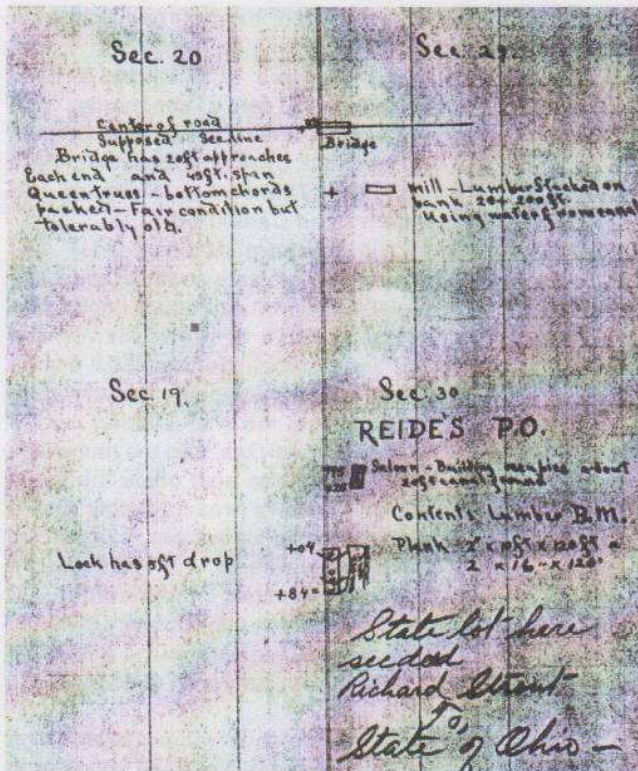 Sec. 20
Sec. 29.
Center of road
Supposed Sec line
Bridge
Bridge has 20ft approaches
Each end and 40ft. span
Queen truss - bottom chords
packed - Fair condition but
tolerably old.
Mill - Lumber Stacked on
bank 20 + 200 ft.
Using water from canal
Sec. 19.
Sec. 30
REIDE'S P.O.
Saloon - Building occupies about
canal ground
Contents Lumber B.M.
Plank
2 x 16 - x 120'
Lock has 5ft drop
+04
+84=
State lot here
seeded
Richard Strout
To,
State of Ohio -